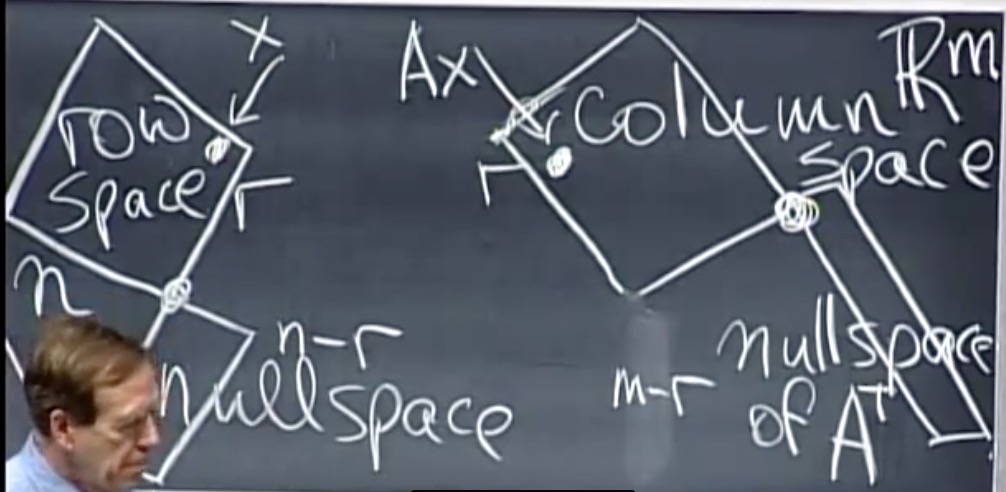 x
row
space
r
n
n-r
nullspace
Ax
column
space
Rᵐ
r
m-r
nullspace
of Aᵀ